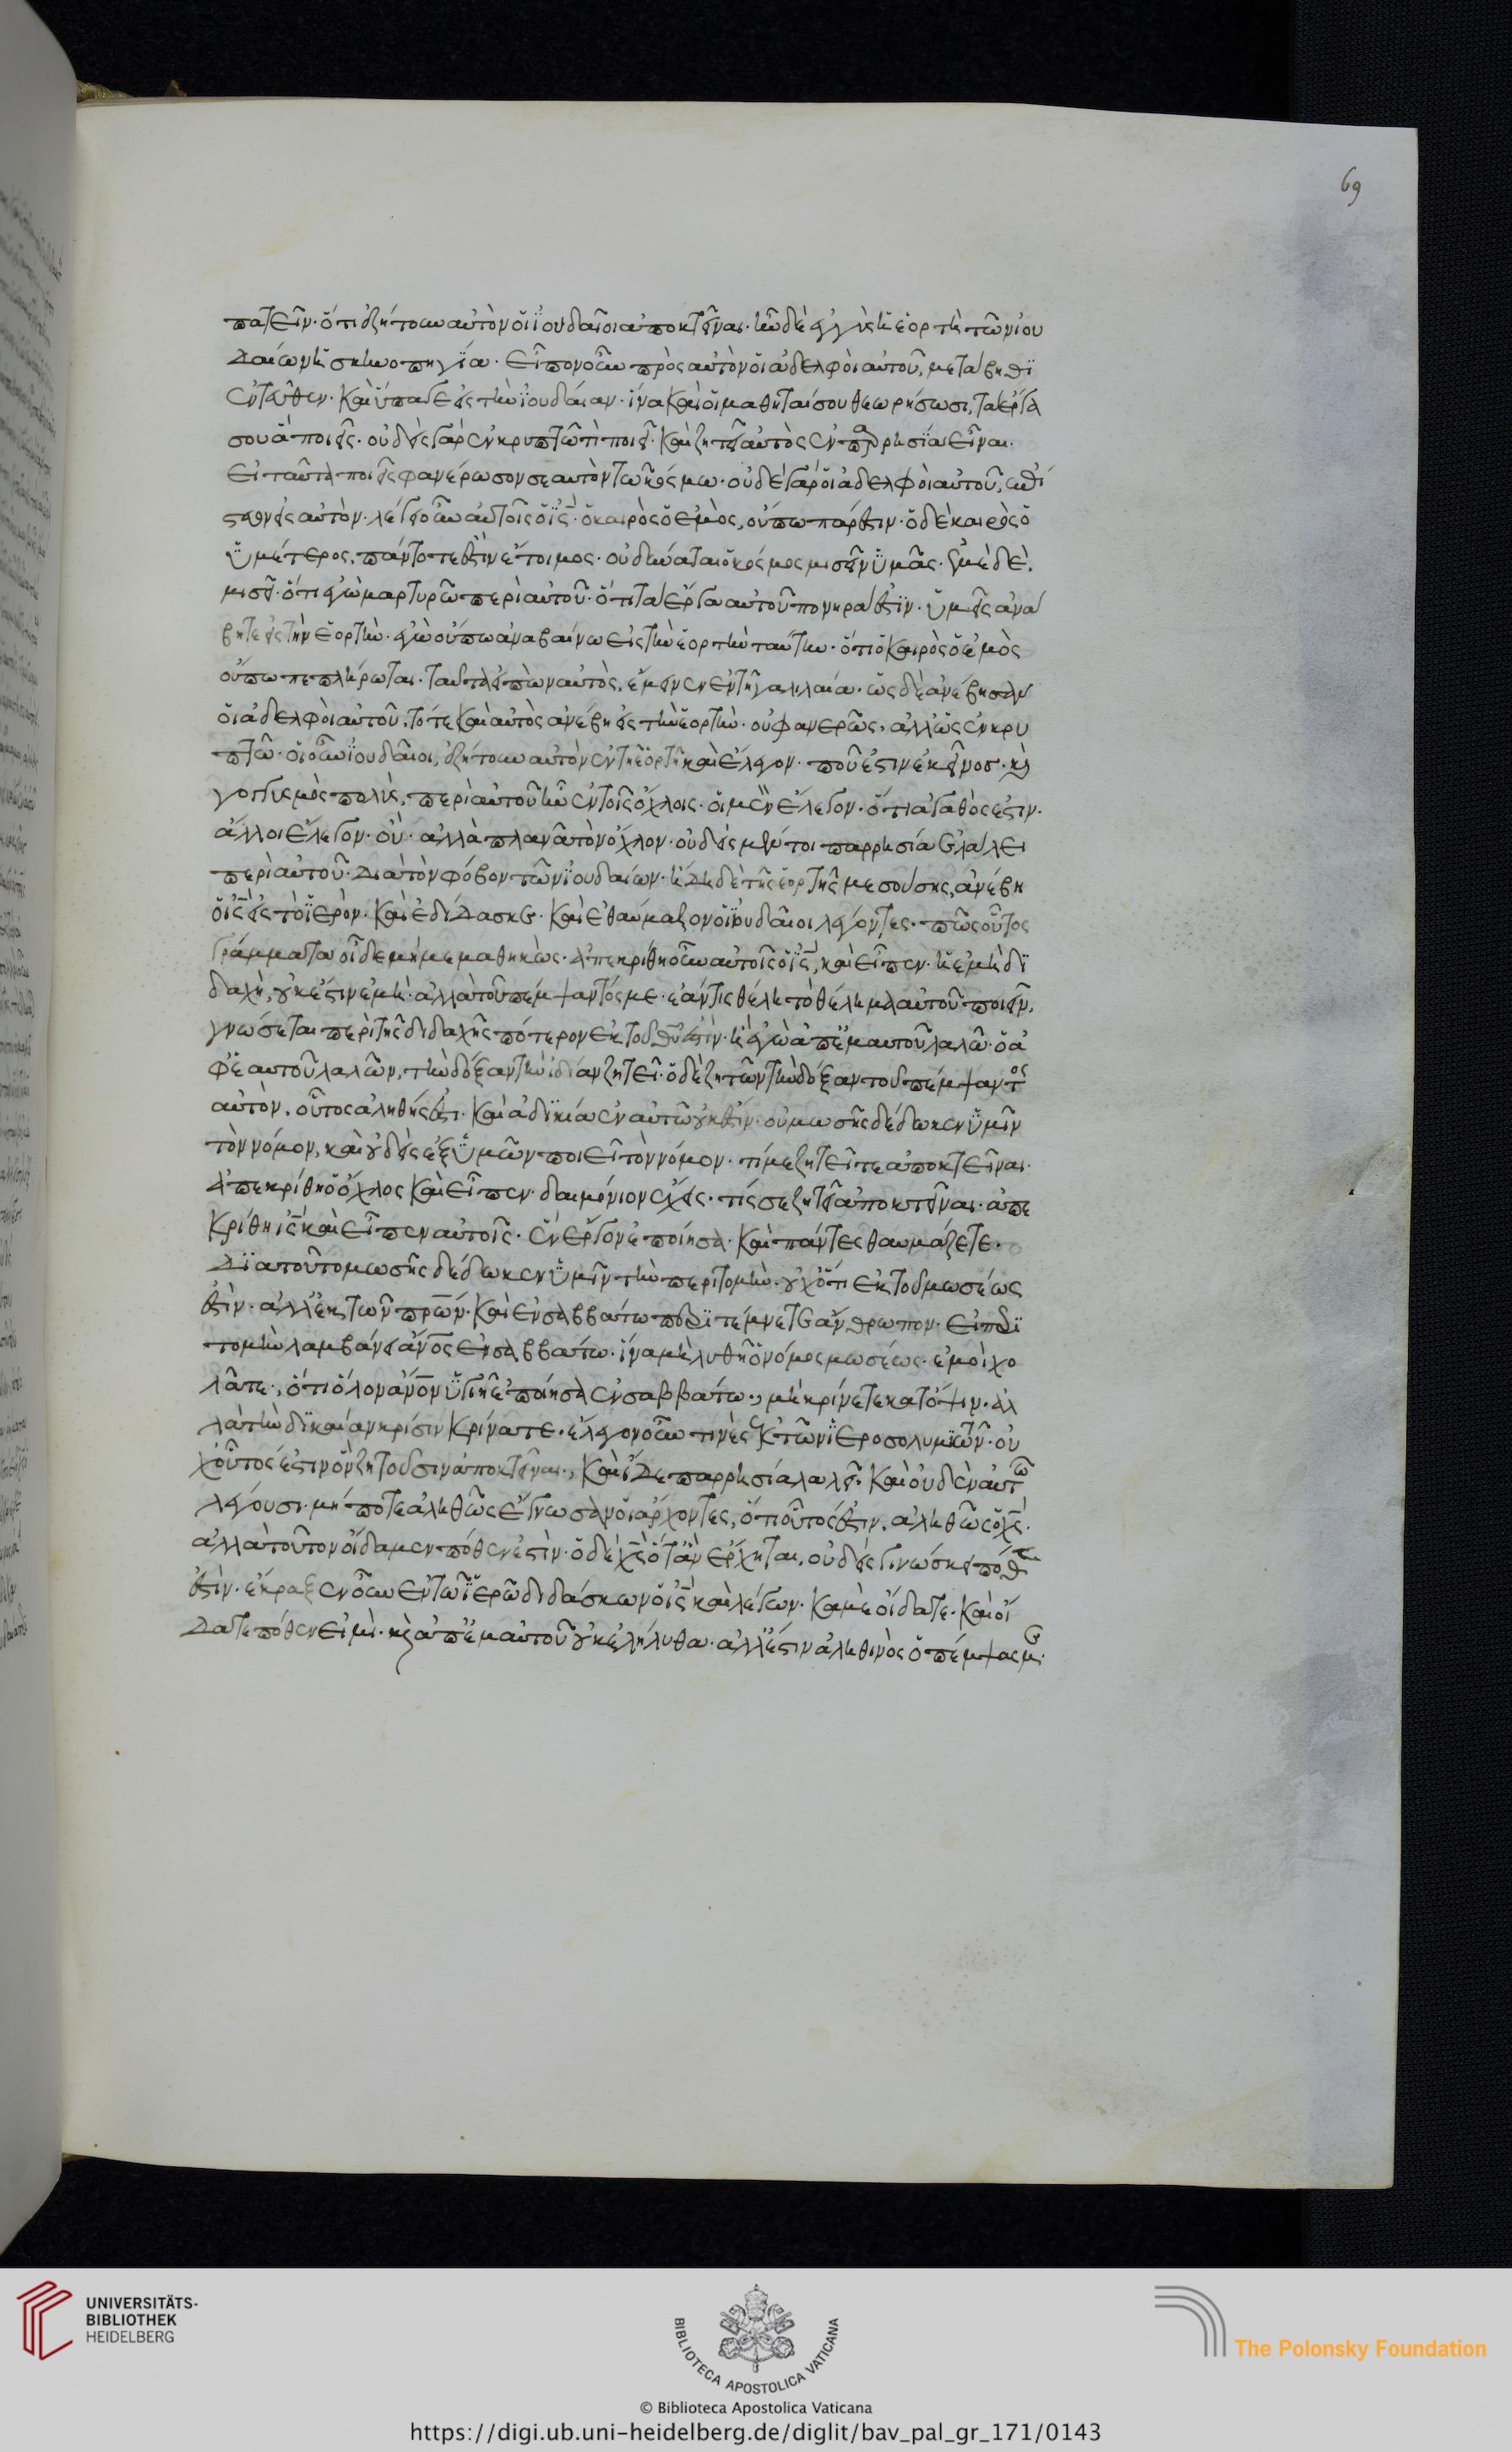 69
πατεῖν· ὅτι ἐζήτουν αὐτὸν οἱ ϊουδαῖοι ἀποκτεῖναι. ἦν δὲ ἐγγὺς ἡ ἑορτὴ τῶν ϊου
δαίων ἡ σκηνοπηγϊα· εἶπον οὖν πρὸς αὐτὸν οἱ ἀδελφοὶ αὐτοῦ, μετάβηθϊ
ἐντεῦθεν· καὶ ὕπαγε εἰς τὴν ϊουδαίαν· ἵνα καὶ οἱ μαθηταί σου θεωρήσωσι, τὰ ἔργα
σου ἃ ποιεῖς· οὐδεὶς γὰρ ἐν κρυπτῶ τὶ ποιεῖ· καὶ ζητεῖ αὐτὸς ἐν παρρησϊα εἶναι.
εἰ ταῦτα ποιεῖς φανέρωσον σεαυτὸν τῶ κόσμω· οὐδὲ γὰρ οἱ ἀδελφοὶ αὐτοῦ, ἐπί
στευον εἰς αὐτόν· λέγει οὖν αὐτοῖς ὁ ις· ὁ καιρὸς ὁ ἐμὸς, οὔπω πάρεστιν· ὁ δὲ καιρὸς ὁ
ὑμέτερος, πάντοτε ἐστιν ἕτοιμος· οὐ δύναται ὁ κόσμος μισεῖν ὑμᾶς· ἐμὲ δὲ,
μισεῖ· ὅτι ἐγὼ μαρτυρῶ περὶ αὐτοῦ· ὅτι τὰ ἔργα αὐτοῦ πονηρά ἐστϊν· ὑμεῖς ἀνά
βητε εἰς τὴν ἑορτήν· ἐγὼ οὔπω ἀναβαίνω εἰς τὴν ἑορτὴν ταύτην· ὅτι ὁ καιρὸς ὁ ἐμὸς
οὔπω πεπλήρωται· ταῦτα εἰπὼν αὐτὸς, ἔμεινεν ἐν τῆ γαλιλαία· ὡς δὲ ἀνέβησαν
οἱ ἀδελφοὶ αὐτοῦ, τότε καὶ αὐτὸς ἀνέβη εἰς τὴν ἑορτήν· οὐ φανερῶς, ἀλλ ὡς ἐν κρυ
πτῶ· οἱ οὖν ϊουδαῖοι, ἐζήτουν αὐτὸν ἐν τῆ ἑορτῆ καὶ ἔλεγον· ποῦ ἐστιν ἐκεῖνος· καὶ
γογγυσμὸς πολὺς, περὶ αὐτοῦ ἦν ἐν τοῖς ὄχλοις· οἱ μὲν ἔλεγον· ὅτι ἀγαθὸς ἐστιν·
ἄλλοι ἔλεγον· οὔ· ἀλλὰ πλανᾶ τὸν ὄχλον· οὐδεὶς μέντοι παρρησία ἐλάλει
περὶ αὐτοῦ· διὰ τὸν φόβον τῶν ϊουδαίων· ἤδη δὲ τῆς ἑορτῆς μεσούσης, ἀνέβη
ὁ ις εἰς τὸ ϊερὸν· καὶ ἐδίδασκε· καὶ ἐθαύμαζον οἱ ϊουδαῖοι λέγοντες· πῶς οὗτος
γράμματα οἶδε μὴ μεμαθηκώς· ἀπεκρίθη οὖν αὐτοῖς ὁ ις, καὶ εἶπεν· ἡ ἐμὴ δϊ
δαχὴ, οὐκ ἔστιν ἐμὴ· ἀλλὰ τοῦ πέμψαντός με· ἐάν τις θέλη τὸ θέλημα αὐτοῦ ποιεῖν,
γνώσεται περὶ τῆς διδαχῆς πότερον ἐκ τοῦ θυ ἐστὶν· ἢ ἐγὼ ἀπ ἐμαυτοῦ λαλῶ· ὁ ἀ
φ ἑαυτοῦ λαλῶν, τὴν δόξαν τὴν ϊδίαν ζητεῖ· ὁ δὲ ζητῶν τὴν δόξαν τοῦ πέμψαντος
αὐτὸν, οὗτος ἀληθής ἐστι· καὶ ἀδϊκία ἐν αὐτῶ οὐκ ἔστιν· οὐ μωσῆς δέδωκεν ὑμῖν
τὸν νόμον, καὶ οὐδεὶς ἐξ ὑμῶν ποιεῖ τὸν νόμον· τί με ζητεῖτε ἀποκτεῖναι·
ἀπεκρίθη ὁ ὄχλος καὶ εἶπεν· δαιμόνιον ἔχεις· τίς σε ζητεῖ ἀποκτεῖναι· ἀπε
κρίθη ις καὶ εἶπεν αὐτοῖς· ἓν ἔργον ἐποίησα· καὶ πάντες θαυμάζετε.
δϊατοῦτο μωσῆς δέδωκεν ὑμῖν τὴν περιτομήν· οὐχ ὅτι ἐκ τοῦ μωσέως
ἐστὶν· ἀλλ ἐκ τῶν πρων· καὶ ἐν σαββάτω περϊτέμνετε ἄνθρωπον· εἰ περϊ
τομὴν λαμβάνει ἀνος ἐν σαββάτω· ἵνα μὴ λυθῆ ὁ νόμος μωσέως· ἐμοὶ χο
λᾶτε, ὅτι ὅλον ἀνον ὑγιῆ ἐποίησα ἐν σαββάτω., μὴ κρίνετε κατ ὄψιν· ἀλ
λὰ τὴν δϊκαίαν κρίσιν κρίνατε· ἔλεγον οὖν τινὲς ἐκ τῶν ϊεροσολυμϊτῶν· οὐ
χ οὗτός ἐστιν ὃν ζητοῦσιν ἀποκτεῖναι., καὶ ἴδε παρρησία λαλεῖ· καὶ οὐδὲν αὐτῶ
λέγουσι· μήποτε ἀληθῶς ἔγνωσαν οἱ ἄρχοντες, ὅτι οὗτός ἐστιν, ἀληθῶς ὁ χς·
ἀλλὰ τοῦτον οἴδαμεν πόθεν ἐστὶν· ὁ δὲ χς ὅταν ἔρχηται, οὐδεὶς γινώσκει πόθεν
ἐστὶν· ἔκραξεν οὖν ἐν τῶ ϊερῶ διδάσκων ὁ ις καὶ λέγων· κἀμὲ οἴδατε· καὶ οἴ
δατε πόθεν εἰμὶ· καὶ ἀπ ἐμαυτοῦ οὐκ ἐλήλυθα· ἀλλ ἔστιν ἀληθινὸς ὁ πέμψας με·
UNIVERSITÄTS-
BIBLIOTHEK
HEIDELBERG
BIBLIOTECA APOSTOLICA VATICANA
The Polonsky Foundation
© Biblioteca Apostolica Vaticana
https://digi.ub.uni-heidelberg.de/diglit/bav_pal_gr_171/0143